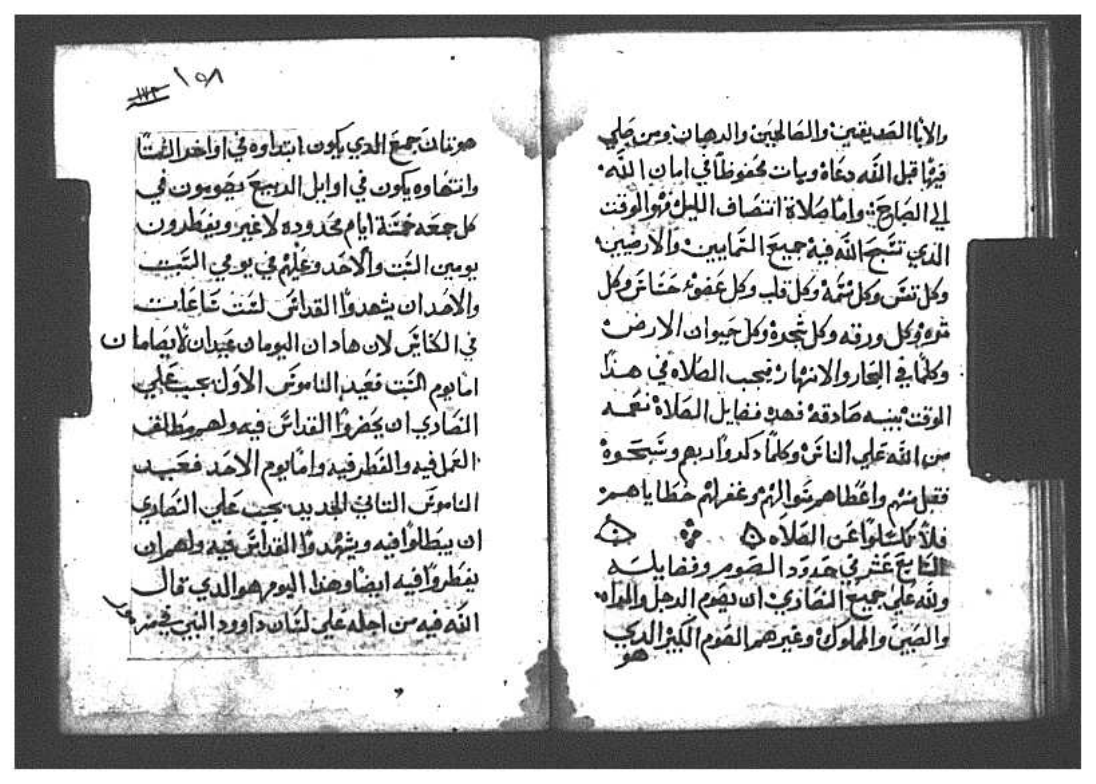 والابا الصديقين والصالحين والرهبان ومن صلي
فيها قبل الله دعاه وبات محفوظاً في امان الله
الي الصباح واما صلاة انتصاف الليل فهو الوقت
الدي تسبح الله فيه جميع السمايين والارضيين
وكل نفس وكل نسمة وكل قلب وكل عضو حساس وكل
ثمره وكل ورقه وكل شجره وكل حيوان الارض
وكلما في البحار والانهار فيجب الصلاه في هذا
الوقت بنيه صادقه فهده فضايل الصلاة نعمه
من الله علي الناس وكلما دكروا ربهم وسبحوه
فقبل منهم واعطاهم سوالهم وغفر لهم خطاياهم
فلا تكسلوا عن الصلاه
السابع عشر في حدود الصوم وفضايله
ولله علي جميع النصاري ان يصوم الرجل والمراه
والصبي والمملوك وغيرهم الصوم الكبير الدي
هو
١٥٨
١٧٢
هو تمان جمع الدي يكون ابتداوه في اواخر الشتا
وانتهاوه يكون في اوايل الربيع يصومون في
كل جمعه خمسة ايام محدوده لا غير ويفطرون
يومين السبت والاحد وعليهم في يومي السبت
والاحد ان يشهدوا القداس لست ساعات
في الكنايس لان هادان اليومان عيدان لا يصامان
اما يوم السبت فعيد الناموس الاول يجب علي
النصاري ان يحضروا القداس فيه ولهم مطلق
العمل فيه والفطر فيه واما يوم الاحد فعيد
الناموس التاني الجديد يجب علي النصاري
ان يبطلوا فيه ويشهدوا القداس فيه ولهم ان
يفطروا فيه ايضا وهذا اليوم هو الدي قال
الله فيه من اجله علي لسان داوود النبي في مزمور